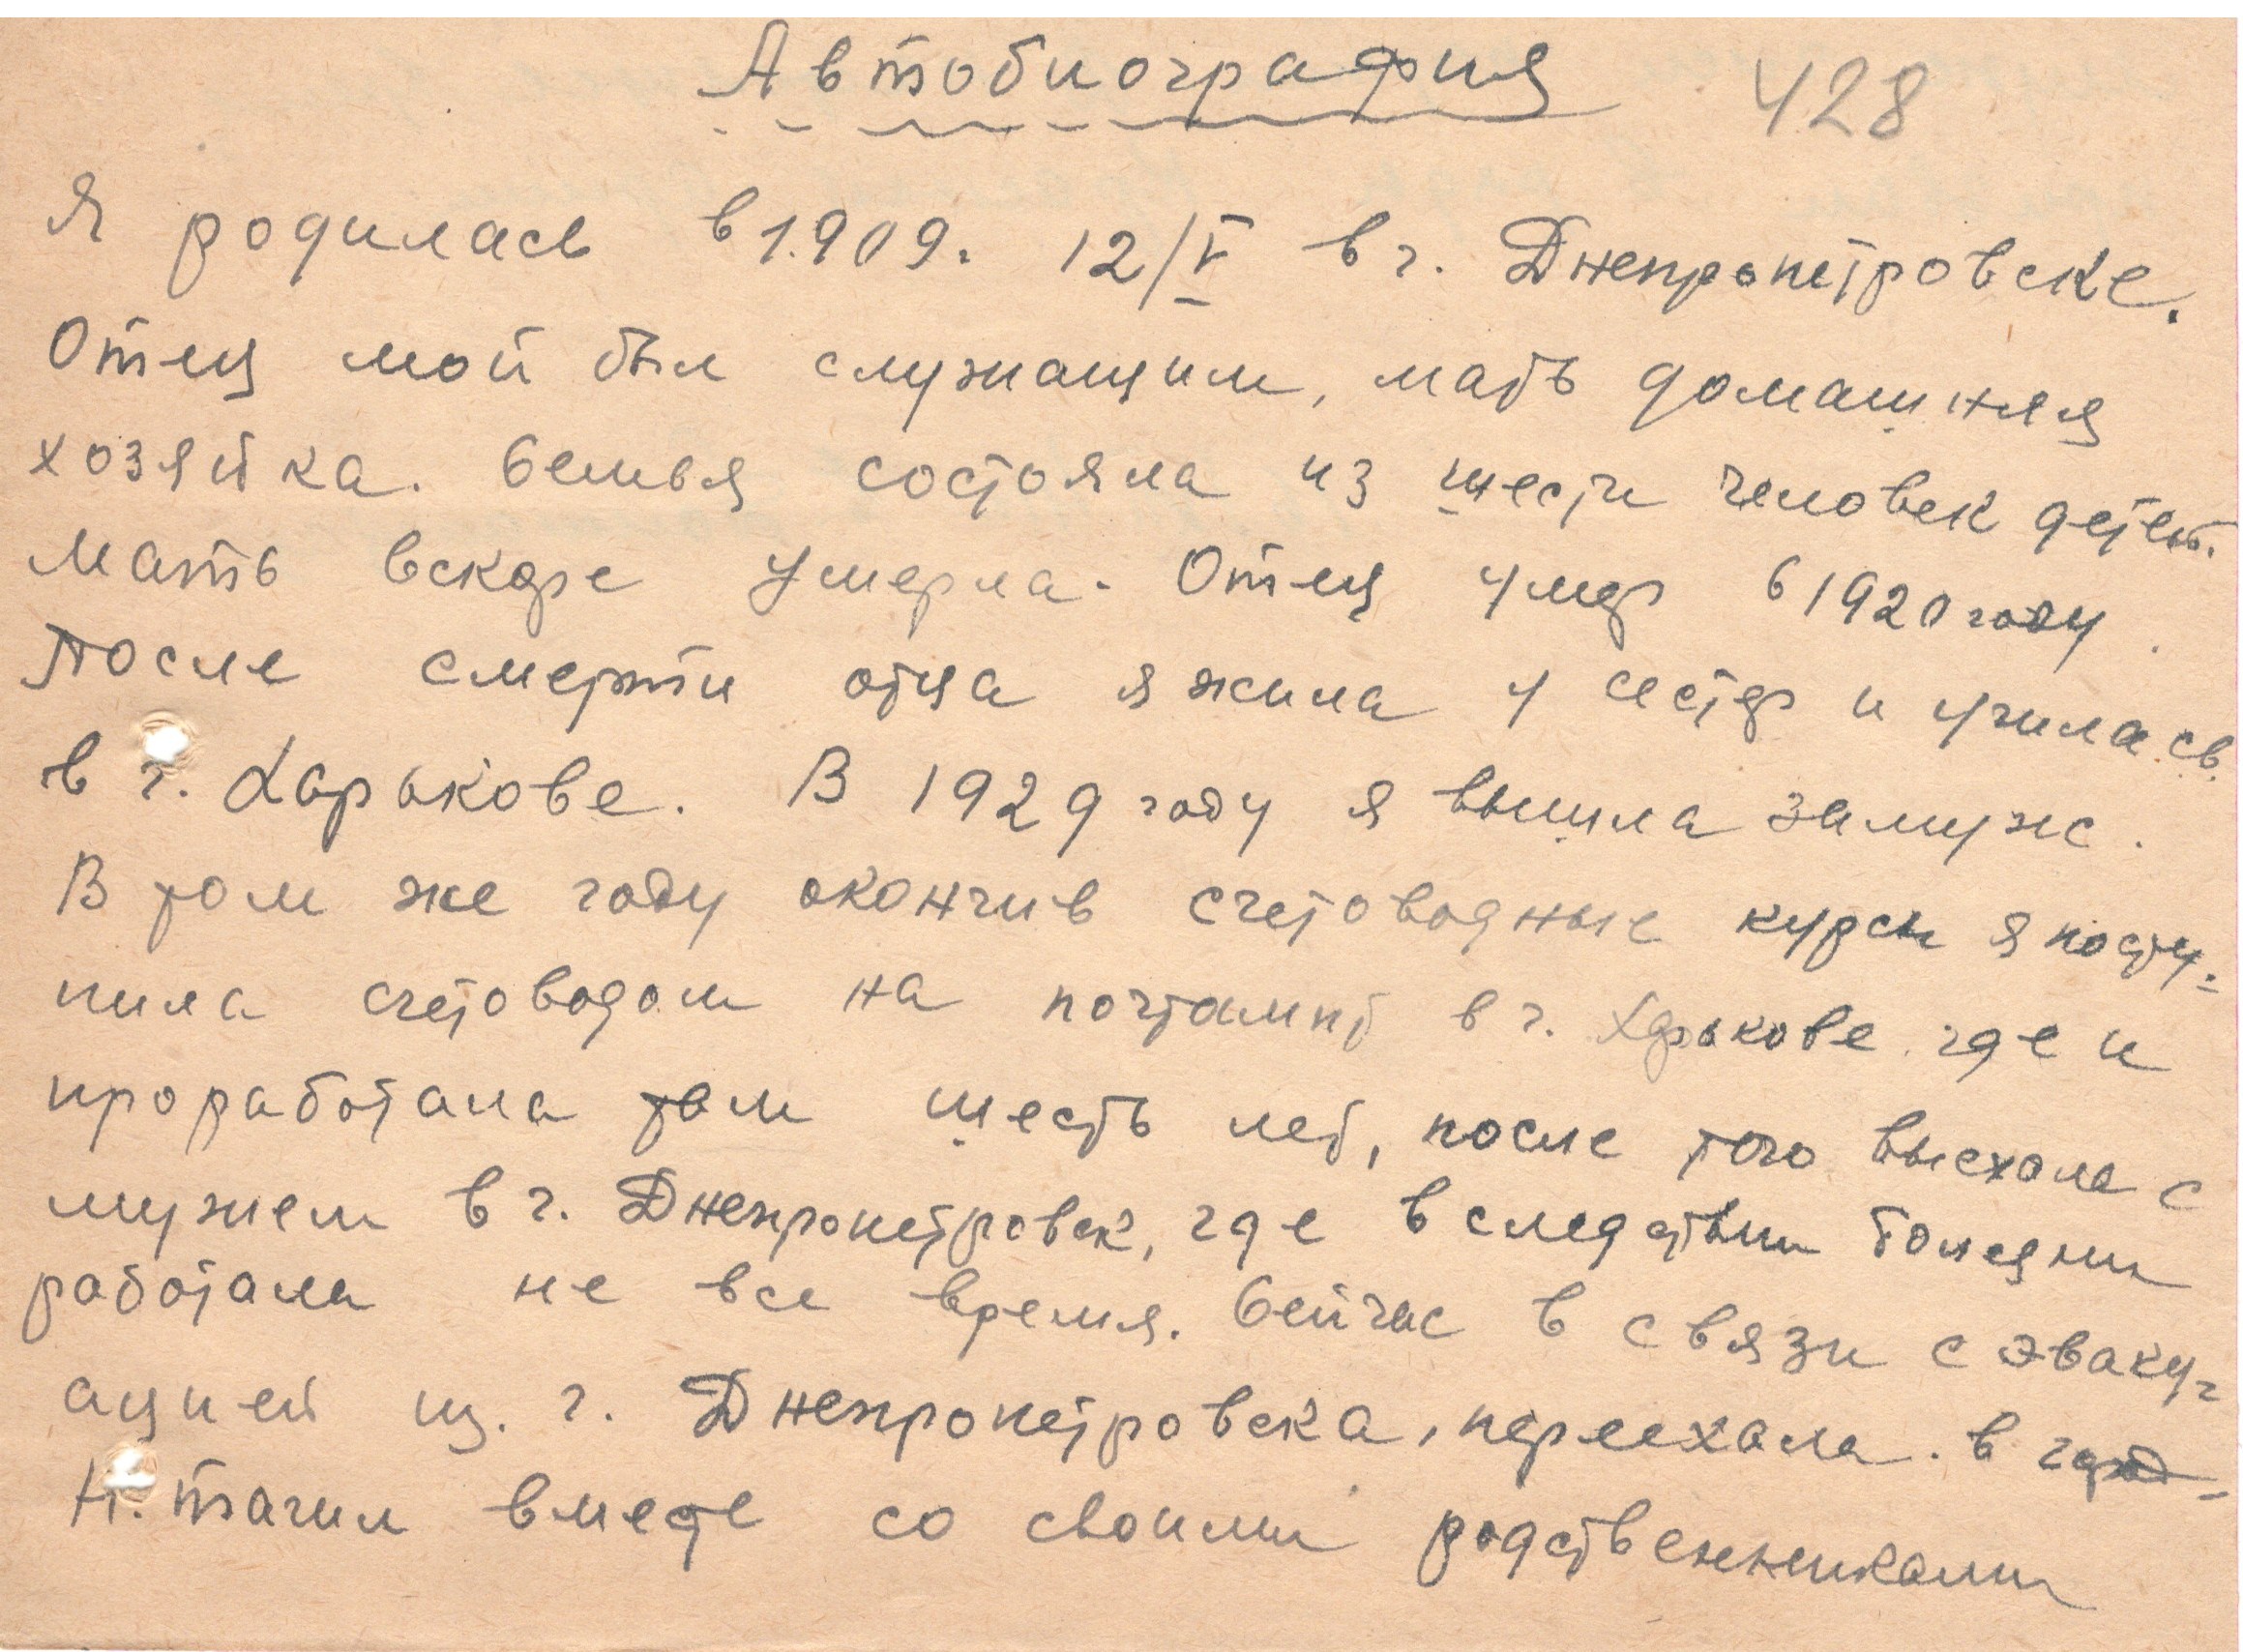 Автобиография 428
Я родилась в 1.909. 12/V в г. Днепропетровске.
Отец мой был служащим, мать домашняя
хозяйка. Семья состояла из шести человек детей.
Мать вскоре умерла. Отец умер в 1920 году.
После смерти отца я жила у сестр и училась
в г. Харькове. В 1929 году я вышла замуж.
В том же году окончив счетоводные курсы я посту-
пила счетоводом на почтампт в г. Харькове где и
проработала там шесть лет, после того выехала с
мужем в г. Днепропетровск, где вследствии болезни
работала не все время. Сейчас в связи с эваку-
ацией из. г. Днепропетровска, переехала. в город-
Н. тагил вместе со своими родственниками